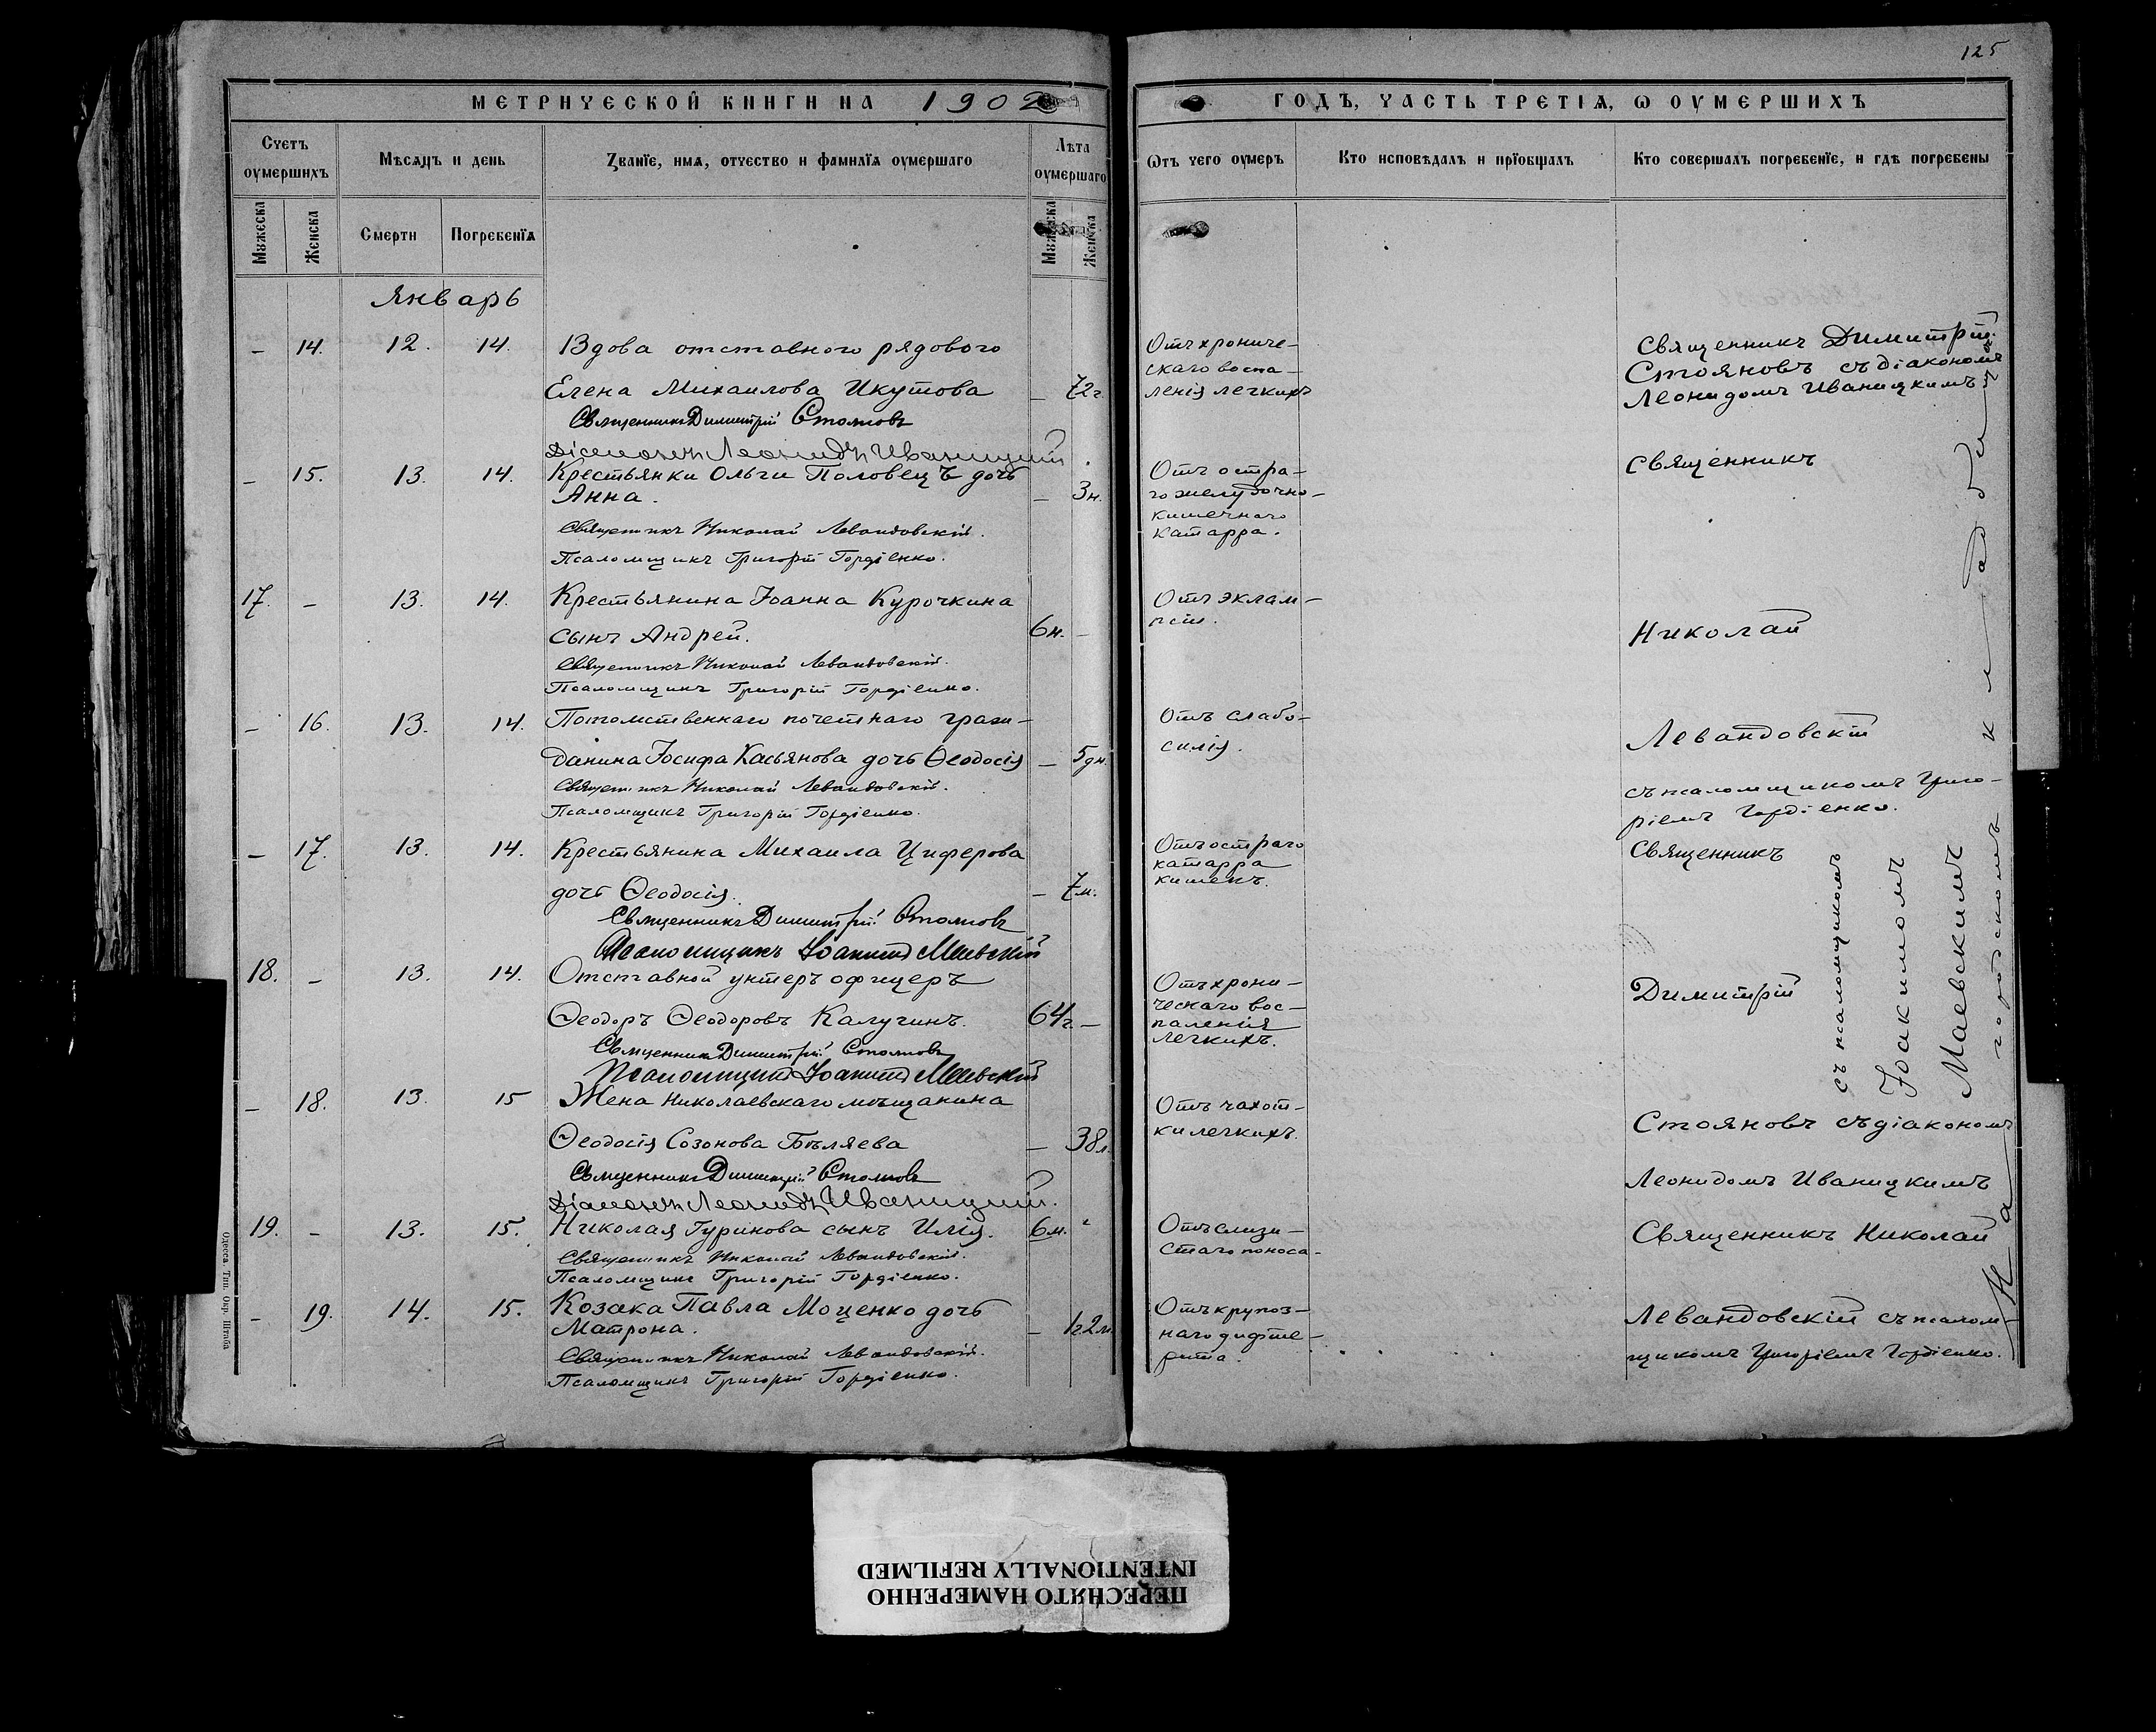 125
МЕТРИЧЕСКОЙ КНИГИ НА 1902
ГОДЪ, ЧАСТЬ ТРЕТІЯ, Ѡ ОУМЕРШИХЪ
Счетъ оумершихъ
Мѣсяцъ и день
Званїе, имя, отчество и фамилїя оумершаго
Лѣта оумершаго
Ѿтъ чего оумеръ
Кто исповѣдалъ и прїобщалъ
Кто совершалъ погребенїе, и гдѣ погребены
Мужеска
Женска
Смерти
Погребенїя
Мужеска
Женска
Январь
– 14. 12. 14. Вдова отставного рядового
Елена Михаилова Икутова – 72 г.
Священникъ Димитрій Стояновъ
Діаконъ Леонидъ Иваницкій
Отъ хрониче-
скаго воспа-
ленія легкихъ
Священникъ Димитрій
Стояновъ съ діакономъ
Леонидомъ Иваницкимъ
– 15. 13. 14. Крестьянки Ольги Половецъ дочь
Анна. – 3 н.
Священникъ Николай Левандовскій.
Псаломщикъ Григорій Гордіенко.
Отъ остра-
го желудочно-
кишечнаго
катарра.
Священникъ
17. – 13. 14. Крестьянина Іоанна Курочкина
сынъ Андрей. 6 н. –
Священникъ Николай Левандовскій.
Псаломщикъ Григорій Гордіенко.
Отъ эклам-
псіи.
Николай
– 16. 13. 14. Потомственнаго почетнаго граж-
данина Іосифа Касьянова дочь Ѳеодосія – 5 дн.
Священникъ Николай Левандовскій.
Псаломщикъ Григорій Гордіенко.
Отъ слабо-
силія.
Левандовскій
съ псаломщикомъ Григо-
ріемъ Гордіенко.
– 17. 13. 14. Крестьянина Михаила Циферова
дочь Ѳеодосія. – 7 м.
Священникъ Димитрій Стояновъ
Псаломщикъ Іоакимъ Маевскій
Отъ остраго
катарра
кишекъ.
Священникъ
18. – 13. 14. Отставной унтеръ офицеръ
Ѳеодоръ Ѳеодоровъ Калугинъ. 64 г. –
Священникъ Димитрій Стояновъ
Псаломщикъ Іоакимъ Маевскій
Отъ хрони-
ческаго вос-
паленія
легкихъ.
Димитрій
съ псаломщикомъ
Іоакимомъ
Маевскимъ
– 18. 13. 15 Жена Николаевскаго мѣщанина
Ѳеодосія Созонова Бѣляева – 38 л.
Священникъ Димитрій Стояновъ
Діаконъ Леонидъ Иваницкій.
Отъ чахот-
ки легкихъ.
Стояновъ съ діакономъ
Леонидомъ Иваницкимъ
19. – 13. 15. Николая Гуринова сынъ Илія. 6 м.
Священникъ Николай Левандовскій.
Псаломщикъ Григорій Гордіенко.
Отъ слизи-
стаго поноса.
Священникъ Николай
– 19. 14. 15. Козака Павла Моценко дочь
Матрона. – 1 г 2 м.
Священникъ Николай Левандовскій.
Псаломщикъ Григорій Гордіенко.
Отъ крупоз-
наго дифте-
рита.
Левандовскій съ псалом-
щикомъ Григоріемъ Гордіенко.
На городскомъ кладби
Одесса. Тип. Окр. Штаба
ПЕРЕСНЯТО НАМЕРЕННО
INTENTIONALLY REFILMED